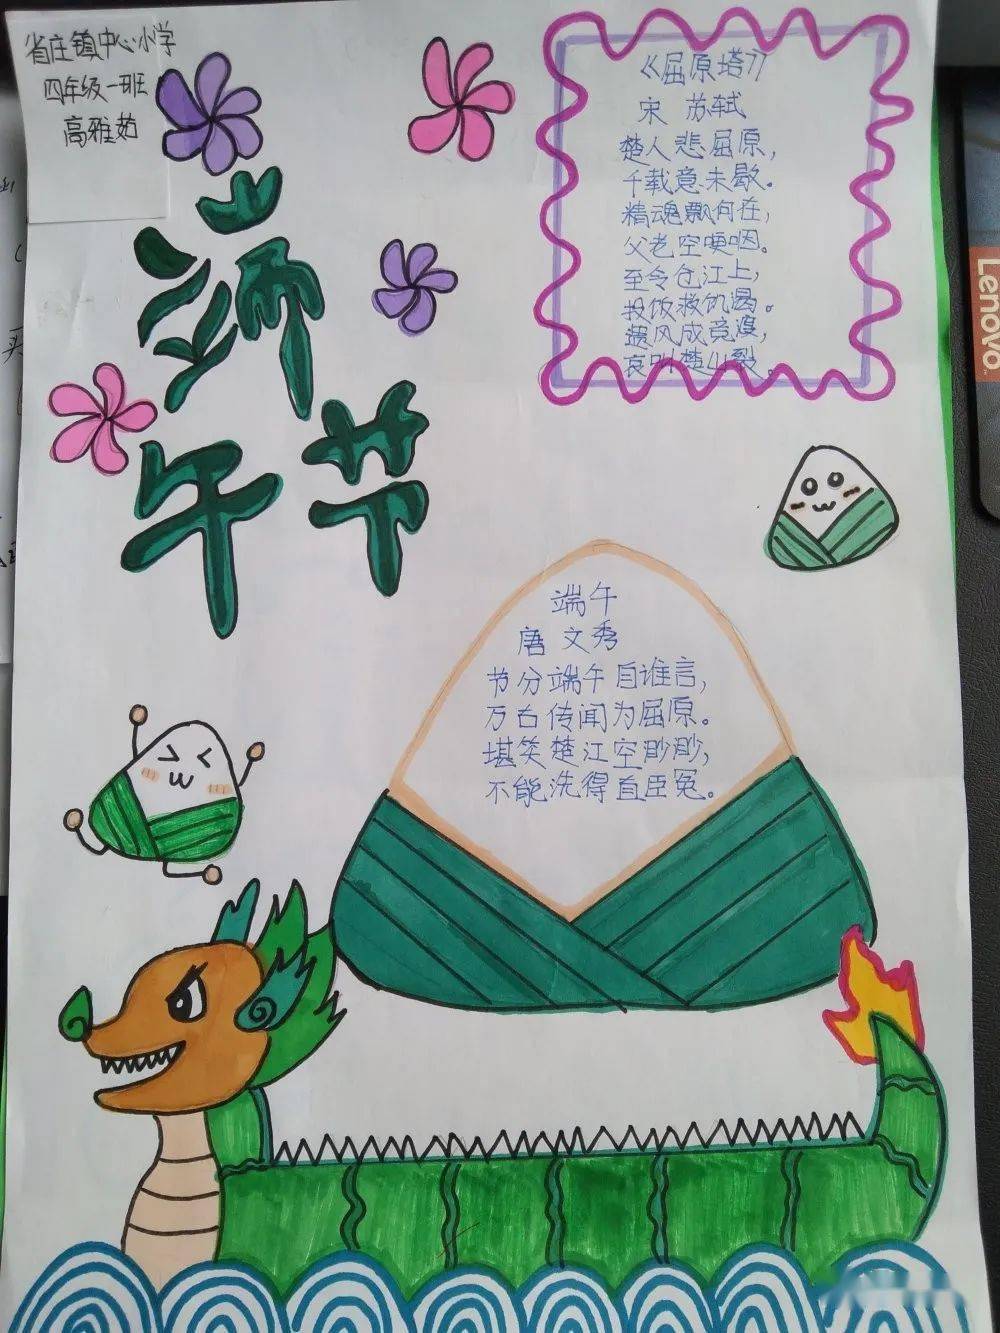 省庄镇中心小学
四年级一班
高雅茹
端午节
《屈原塔》
宋 苏轼
楚人悲屈原，
千载意未歇。
精魂飘何在，
父老空哽咽。
至今仓江上，
投饭救饥渴。
遗风成竞渡，
哀叫楚山裂。
端午
唐 文秀
节分端午自谁言，
万古传闻为屈原。
堪笑楚江空渺渺，
不能洗得直臣冤。
Lenovo